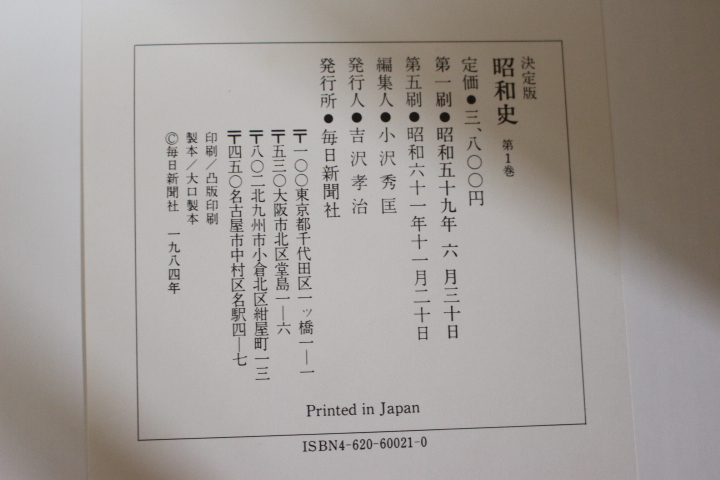 決定版
昭和史 第1巻
定価●三、八〇〇円
第一刷●昭和五十九年 六 月三十日
第五刷●昭和六十一年十一月二十日
編集人●小沢秀匡
発行人●吉沢孝治
発行所●毎日新聞社
〒一〇〇東京都千代田区一ッ橋一―一
〒五三〇大阪市北区堂島一―六
〒八〇二北九州市小倉北区紺屋町一三
〒四五〇名古屋市中村区名駅四―七
印刷/凸版印刷
製本/大口製本
©毎日新聞社 一九八四年
Printed in Japan
ISBN4-620-60021-0